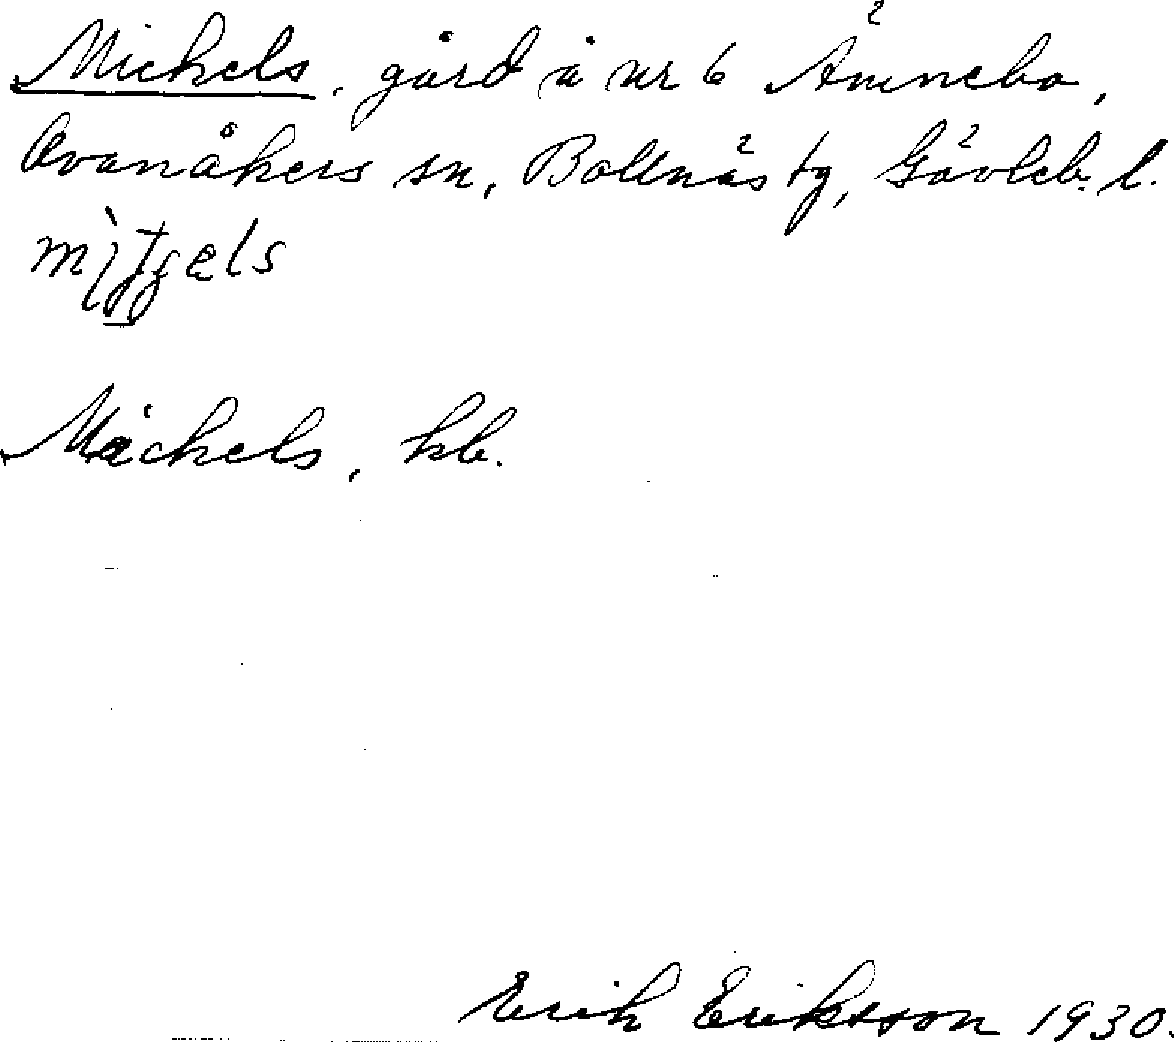 Michels, gård å nr 6 Ämnebo,
Ovanåkers sn, Bollnäs tg, Gävleb. l.
Michels, kb.
Erik Eriksson 1930.